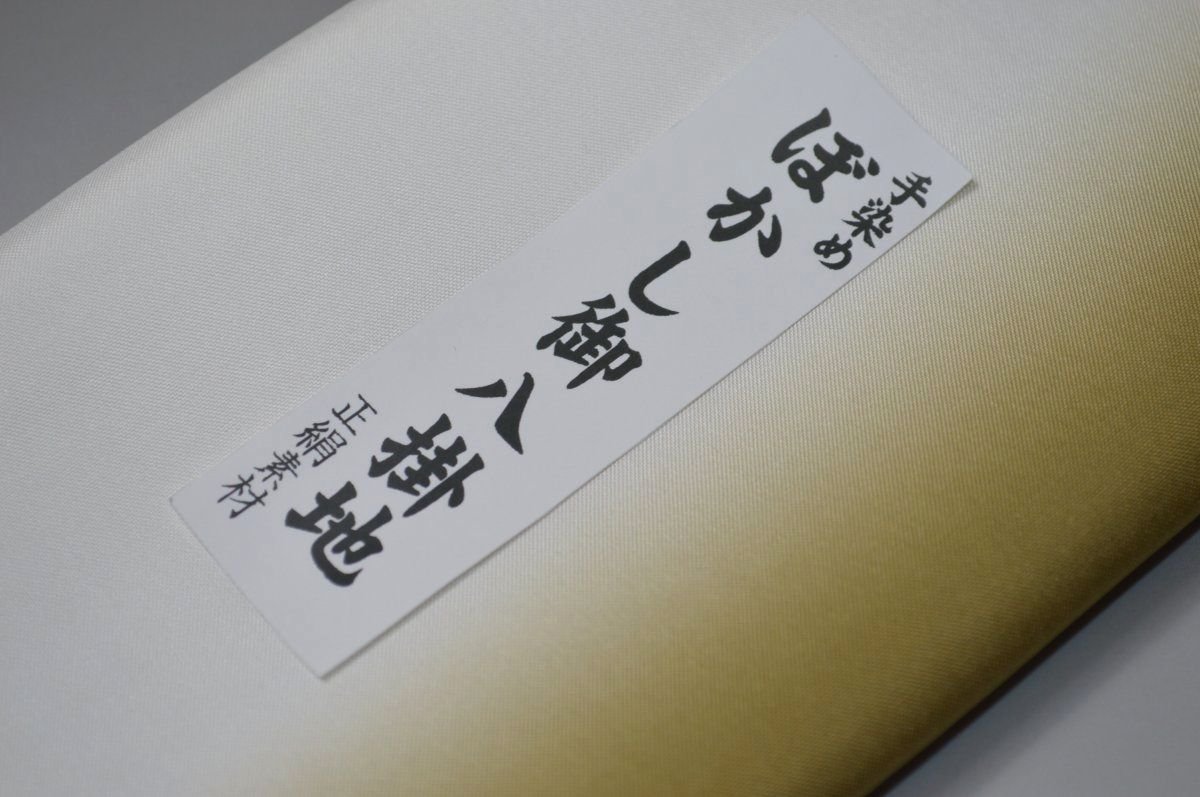 手染め
ぼかし御八掛地
正絹素材